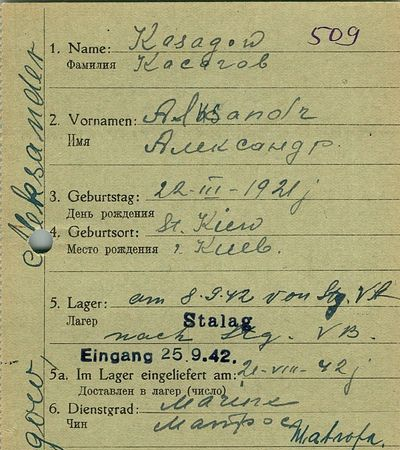 509
1. Name: Kasagow
Фамилия Касагов
2. Vornamen: Alksandr
Имя Александр.
3. Geburtstag: 22-III-1921 j
День рождения
4. Geburtsort: St. Kiew
Место рождения г. Киев.
5. Lager: am 8.9.42 von Stg. VA
Лагер Stalag
nach Stg. VB.
Eingang 25.9.42.
5a. Im Lager eingeliefert am: 21-VIII-42 j
Доставлен в лагер (число)
6. Dienstgrad: Marine
Чин Матрос
Matrosa.
Aleksander
gow,